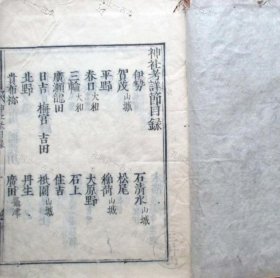 神社考詳節目録
伊勢 石清水山城
賀茂山城 松尾山城
平野 稲荷山城
春日大和 大原野
三輪大和 石上
廣瀬龍田 住吉
日吉 梅宮 吉田 祇園山城
北野 丹生
貴布祢 廣田攝津